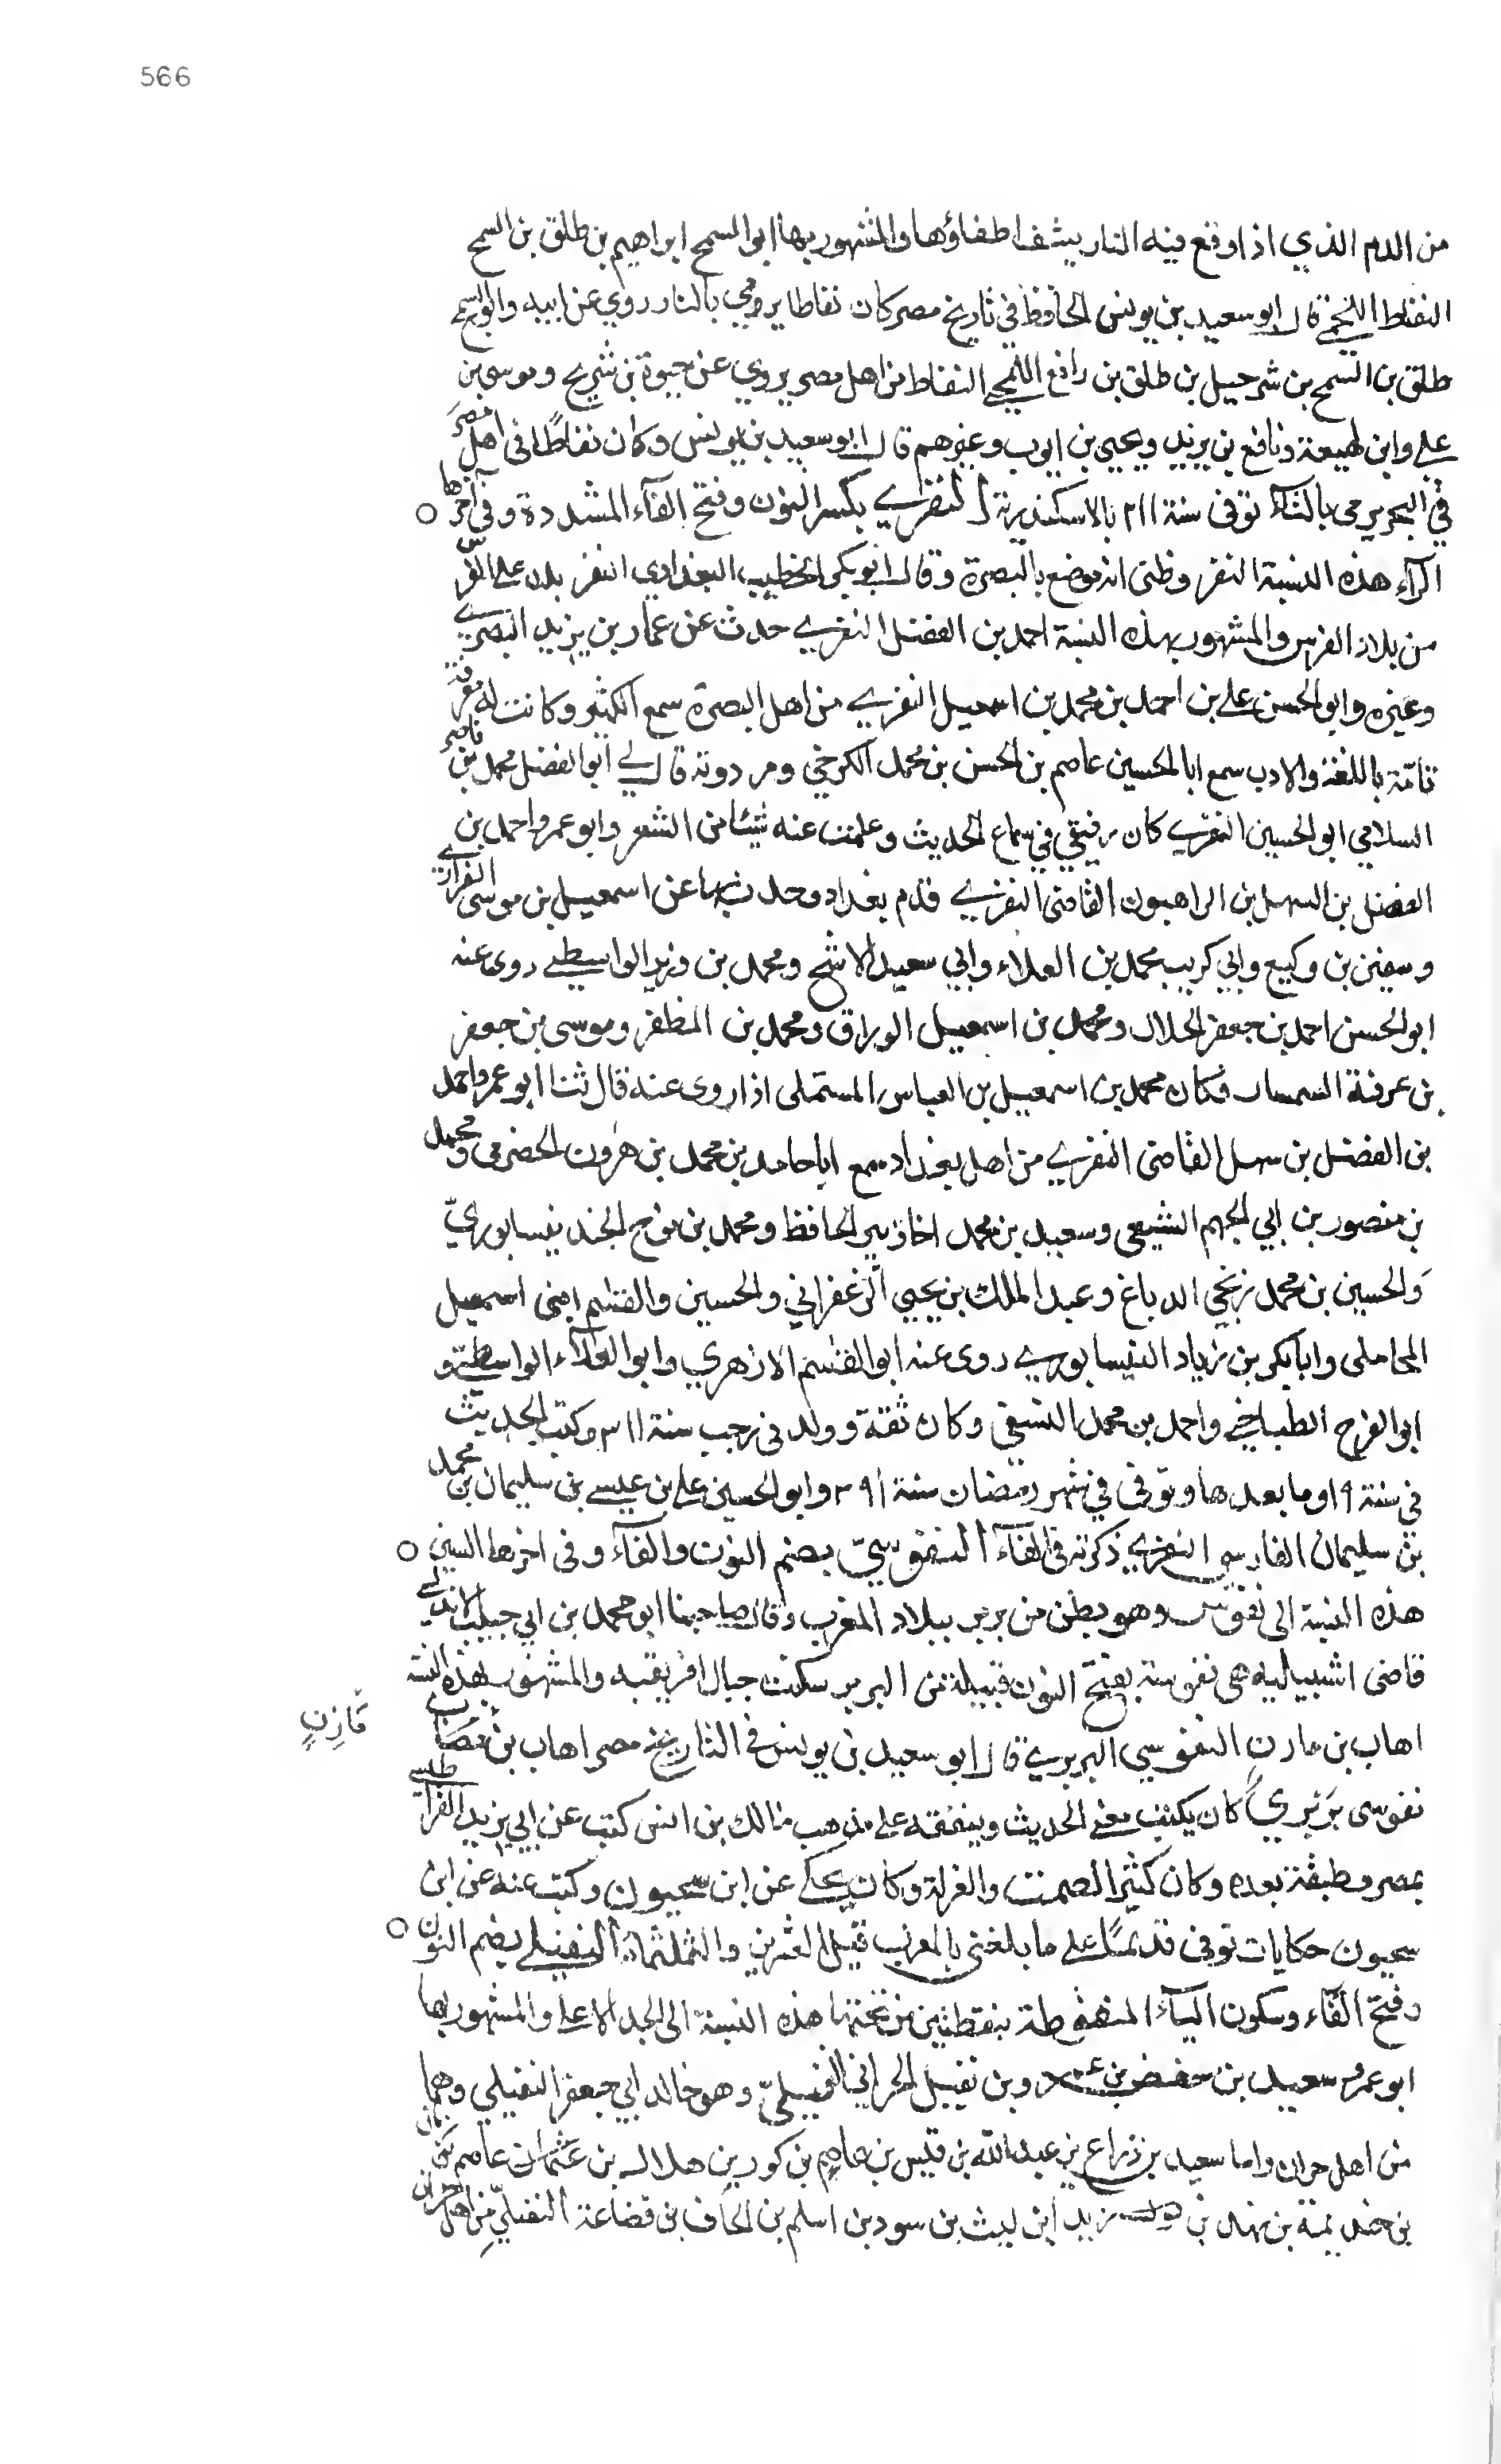 566
من الدم الذي اذا وقع فيه النار يشف اطفاؤها والمشهور بها ابو السمح ابراهيم بن طلق بن السمح
النفاط اللخمي قال ابو سعيد بن يونس الحافظ في تاريخ مصر كان نفاطا يرمي بالنار روي عن ابيه وابو السمح
طلق بن السمح بن شرحبيل بن طلق بن رافع اللخمي النفاط من اهل مصر يروي عن حيوة بن شريح وموسى بن
علي وابن لهيعة ونافع بن يزيد ويحيي بن ايوب وغيرهم قال ابو سعيد بن يونس وكان نفاطًا في اهل مصر
في البحر يرمى بالنار توفى سنة ٢١١ بالاسكندرية النفري بكسر النون وفتح الفآء المشددة وفي آخرها
الرآء هذه النسبة النفر وظنى انه موضع بالبصرة وقال ابو بكر الخطيب البغدادي النفر بلد على النرس
من بلاد الفرس والمشهور بهذه النسبة احمد بن الفضل النفري حدث عن عمار بن يزيد البصري
وغيره وابو الحسن علي بن احمد بن محمد بن اسمعيل النفري من اهل البصرة سمع الكثير وكانت له معرفة
تامّة باللغة والادب سمع ابا الحسين عاصم بن الحسن بن محمد الكرخي ومن دونه قال لي ابو الفضل محمد بن ناصر
السلامي ابو الحسين النفري كان رفيقي في سماع الحديث وعلمت عنه شيئا من الشعر وابو عمرو احمد بن
الفضل بن السهل بن الراهبون القاضى النفري قدم بغداد وحدث بها عن اسمعيل بن موسى الفزاري
وسفين بن وكيع وابي كريب محمد بن العلاء وابي سعيد الاشج ومحمد بن وزير الواسطي روى عنه
ابو الحسن احمد بن جعفر الخلال ومحمد بن اسمعيل الوراق ومحمد بن المظفر وموسى بن جعفر
بن عرفة السمسار فكان محمد بن اسمعيل بن العباس المستملى اذا روى عنه قال ثنا ابو عمرو احمد
بن الفضل بن سهل القاضى النفري من اهل بغداد سمع ابا حامد بن محمد بن هرون الحضرمى ومحمد
بن منصور بن ابي الجهم الشيعى وسعيد بن محمد اخا زبير الحافظ ومحمد بن نوح الجند نيسابوريّ
والحسين بن محمد زنجي الدباغ وعبد الملك بن يحيى الزعفراني والحسين والقسم ابنى اسمعيل
المحاملى وابا بكر بن زياد النيسابوري روى عنه ابو القسم الازهري وابو العلآء الواسطي و
ابو الفرج الطباخي واحمد بن محمد النسفي وكان ثقة وولد في رجب سنة ٣١١ وكتب الحديث
في سنة ١٩ وما بعدها وتوفى في شهر رمضان سنة ٣٩١ وابو الحسين علي بن عيسى بن سليمان بن محمد
بن سليمان الفارسي النفري ذكرته في الفآء النفوسيّ بضم النون والفآء وفى اخرها السين
هذه النسبة الى نفوس وهو بطن من بربر ببلاد المغرب وقال صاحبنا ابو محمد بن ابي حبيب الاندلسي
قاضى اشبيالية هى نفوسة بفتح النون قبيلة من البربر سكنت جبال افريقيه والمشهور بهذه النسبة
اهاب بن مازن النفوسي البربري قال ابو سعيد بن يونس في التاريخ مصر اهاب بن
قازنٍ
نفوسى بَرْبَريٌ كان يكتب معى الحديث ويتفقه على مذهب مالك بن انس كتب عن ابي يزيد القراطيسي
بمصر وطبقة بعده وكان كثير الصمت والعزلة وكان يحكي عن ابن سحيون وكتب عنه عن ابن
سحيون حكايات توفى قديمًا على ما بلغنى بالمغرب قبيل العشرين والثلثمائة النفيلي بضم النون
وفتح الفآء وسكون اليآء المنقوطة بنقطتين من تحتها هذه النسبة الى الجد الاعلى والمشهور بها
ابو عمرو سعيد بن حفص بن عمرو بن نفيل الحراني النفيليّ وهو خال ابي جعفر النفيلي وهما
من اهل حران واما سعيد بن زراع بن عبد الله بن قيس بن عاصم بن كور بن هلال بن عثمان عاصم
بن نهد بن زيد ابن ليث بن سود بن اسلم بن الحاف بن قضاعة النفيليّ من اهل حران